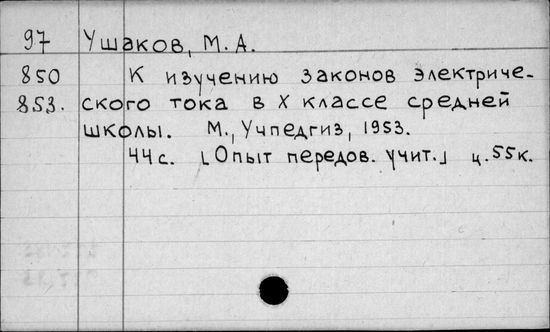 97 Ушаков, М. А.
850 К изучению законов электриче-
853. ского тока в X классе средней
школы. М., Учпедгиз, 1953.
44с. [Опыт передов. учит.] ц. 55к.